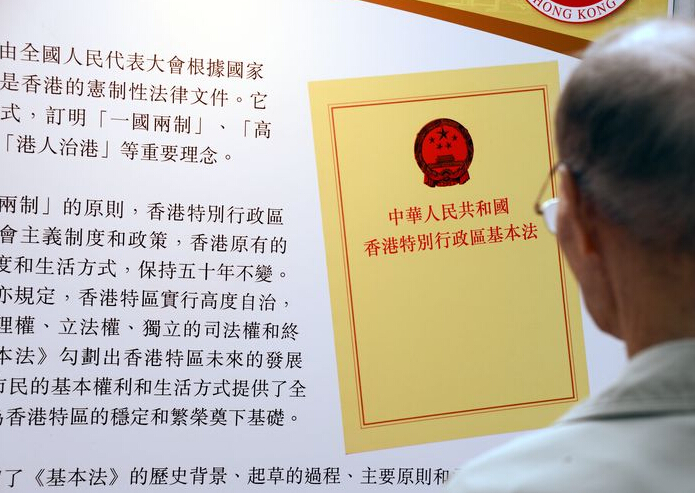 由全國人民代表大會根據國家
是香港的憲制性法律文件。它
式，訂明「一國兩制」、「高
「港人治港」等重要理念。
兩制」的原則，香港特別行政區
會主義制度和政策，香港原有的
度和生活方式，保持五十年不變。
亦規定，香港特區實行高度自治，
理權、立法權、獨立的司法權和終
本法》勾劃出香港特區未來的發展
市民的基本權利和生活方式提供了全
為香港特區的穩定和繁榮奠下基礎。
了《基本法》的歷史背景、起草的過程、主要原則和
中華人民共和國
香港特別行政區基本法
HONG KONG